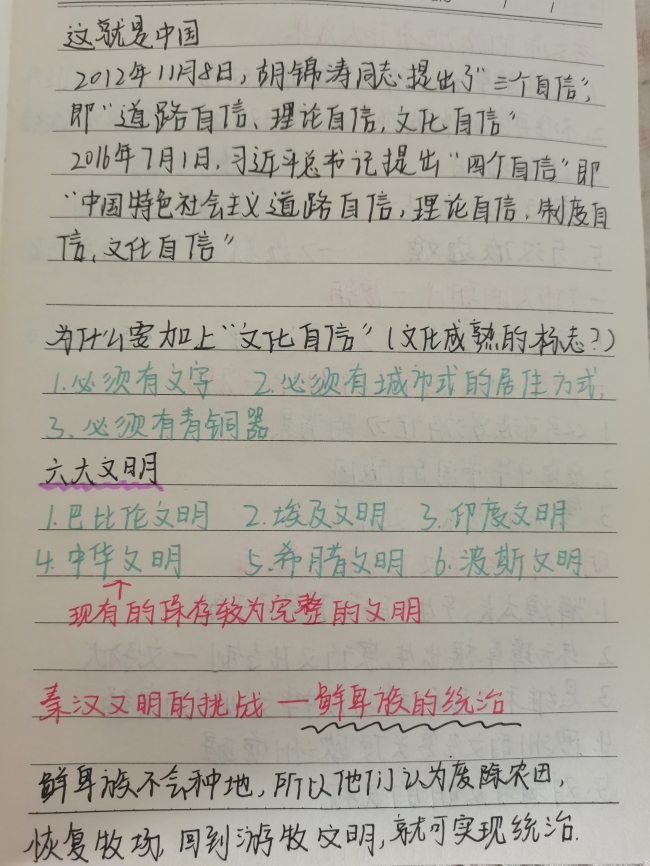 这就是中国
2012年11月8日,胡锦涛同志提出了"三个自信",
即"道路自信、理论自信,文化自信"
2016年7月1日,习近平总书记提出"四个自信"即
"中国特色社会主义道路自信,理论自信,制度自
信,文化自信"
为什么要加上"文化自信"(文化成熟的标志?)
1.必须有文字 2.必须有城市式的居住方式,
3.必须有青铜器
六大文明
1.巴比伦文明 2.埃及文明 3.印度文明
4.中华文明 5.希腊文明 6.波斯文明
现有的保存较为完整的文明
秦汉文明的挑战—鲜卑族的统治
鲜卑族不会种地,所以他们认为废除农田,
恢复牧场,回到游牧文明,就可实现统治.